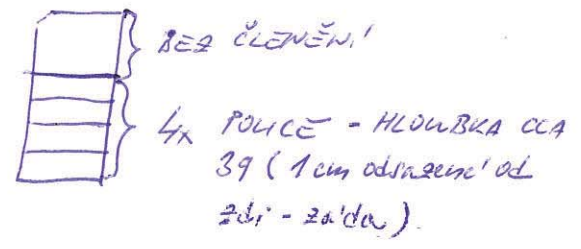 BEZ ČLENĚNÍ
4x POLICE - HLOUBKA CCA
39 (1 cm odsazení od
zdi - záda)